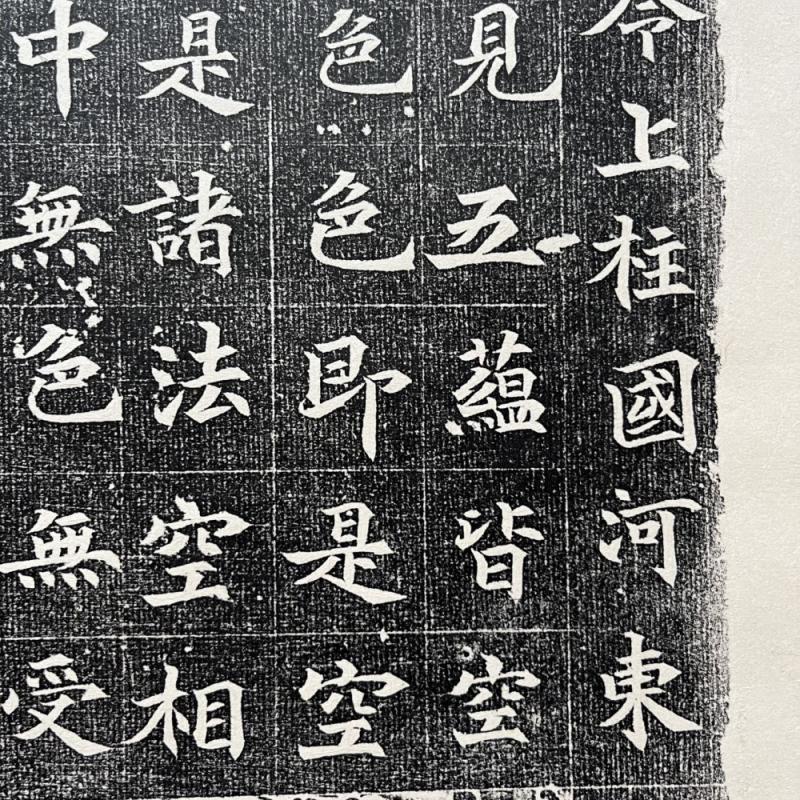 令上柱國河東
見五蘊皆空
色色即是空
是諸法空相
中無色無受